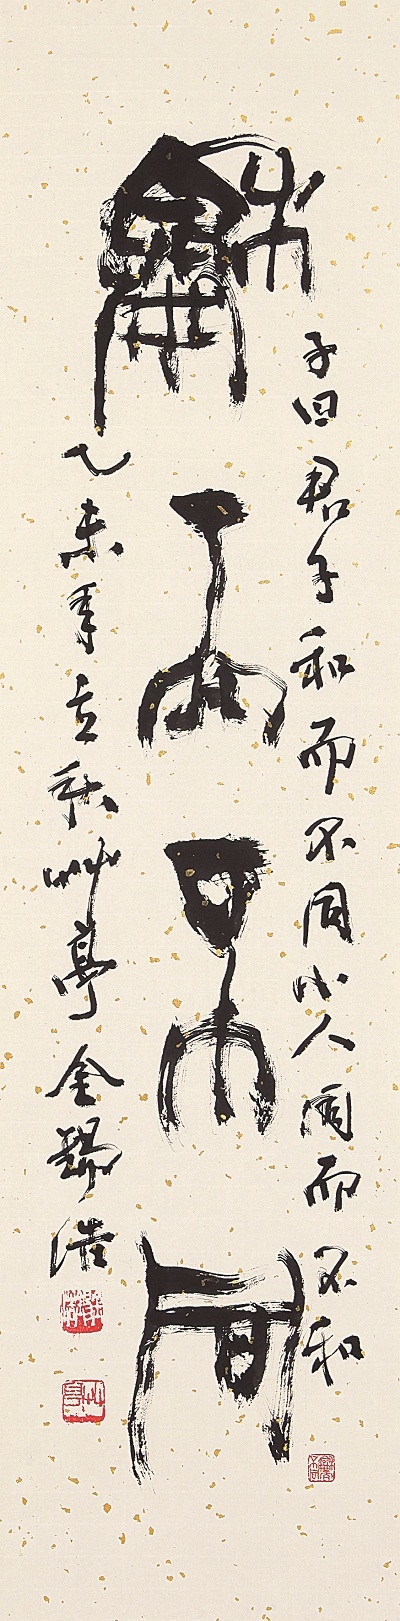 龢而不同
子曰君子和而不同小人同而不和
乙未年立秋艸亭金錫浩